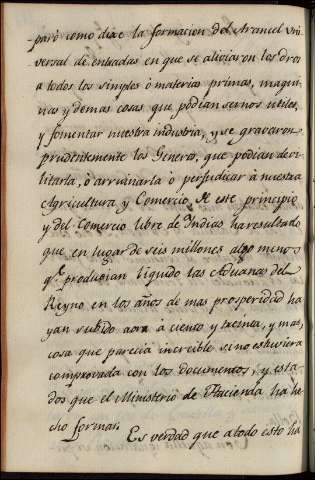 paró como dixe la formacion del Arancel uni
versal de entradas en que se aliviaron los dros
a todos los simples ò materias primas, maqui
nas y demas cosas que podian sernos utiles,
y fomentar nuestra industria, y se gravaron
prudentemente los Generos, que podian devi
litarla, ò arruinarla ò perjudicar à nuestra
Agricultura y Comercio. A este principio
y del Comercio libre de Indias, ha resultado
que en lugar de seis millones algo menos
qe. producian liquido las Aduanas del
Reyno en los años de mas prosperidad ha
yan subido aora à ciento y treinta, y mas,
cosa que parecia increible si no estuviera
comprovada con los documentos, y esta
dos que el Ministerio de Hacienda ha he
cho formar.
Es verdad que a todo esto ha